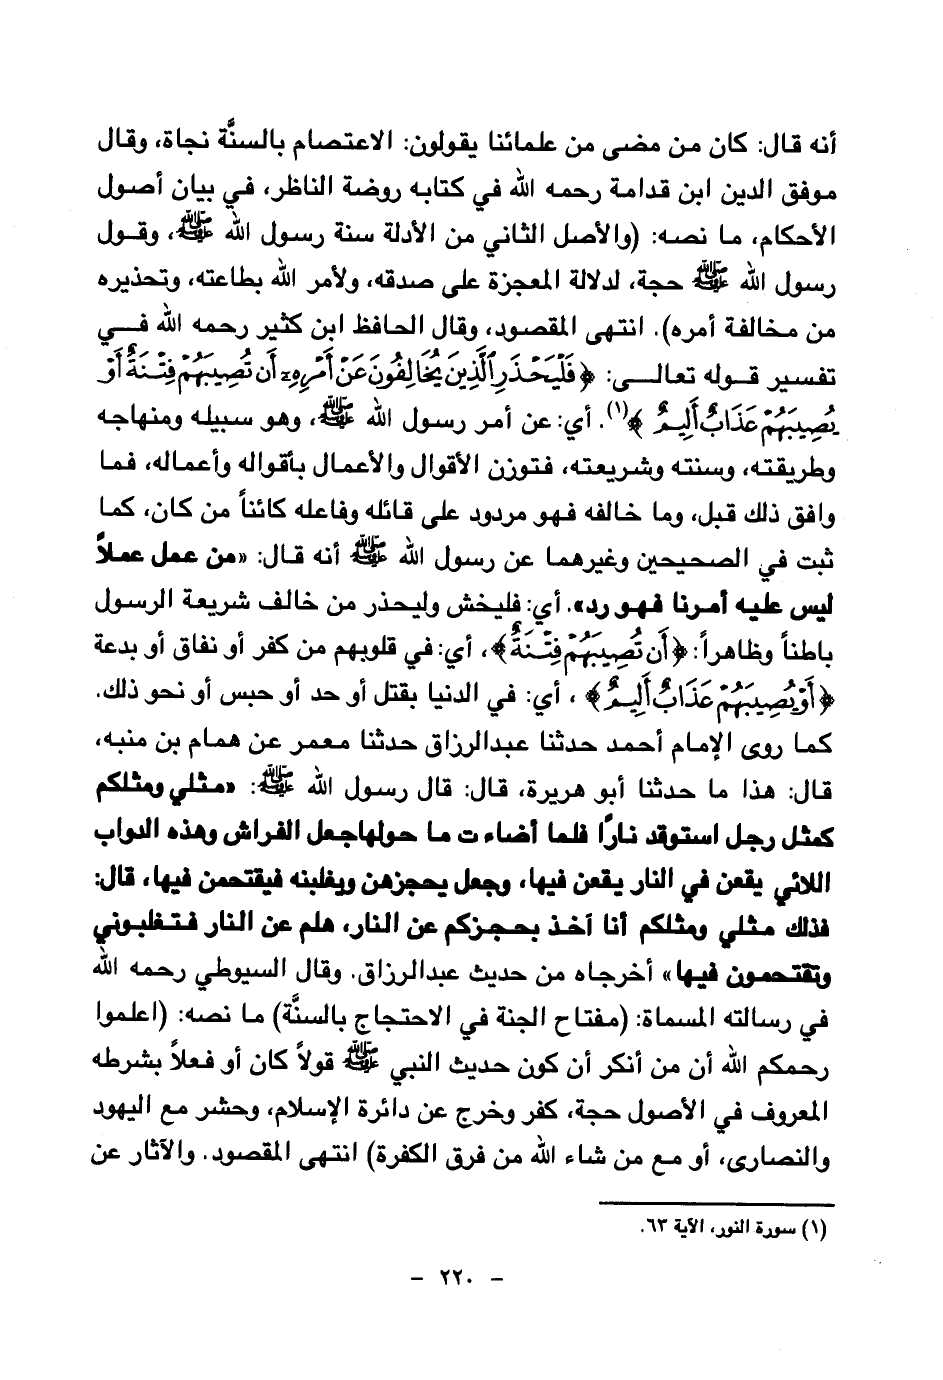 أنه قال: كان من مضى من علمائنا يقولون: الاعتصام بالسنَّة نجاة، وقال
موفق الدين ابن قدامة رحمه الله في كتابه روضة الناظر، في بيان أصول
الأحكام، ما نصه: (والأصل الثاني من الأدلة سنة رسول الله ﷺ، وقول
رسول الله ﷺ حجة، لدلالة المعجزة على صدقه، ولأمر الله بطاعته، وتحذيره
من مخالفة أمره). انتهى المقصود، وقال الحافظ ابن كثير رحمه الله في
تفسير قوله تعالى: ﴿فَلْيَحْذَرِ ٱلَّذِينَ يُخَالِفُونَ عَنْ أَمْرِهِۦٓ أَن تُصِيبَهُمْ فِتْنَةٌ أَوْ
يُصِيبَهُمْ عَذَابٌ أَلِيمٌ﴾(١). أي: عن أمر رسول الله ﷺ، وهو سبيله ومنهاجه
وطريقته، وسنته وشريعته، فتوزن الأقوال والأعمال بأقواله وأعماله، فما
وافق ذلك قبل، وما خالفه فهو مردود على قائله وفاعله كائناً من كان، كما
ثبت في الصحيحين وغيرهما عن رسول الله ﷺ أنه قال: «من عمل عملاً
ليس عليه أمرنا فهو رد». أي: فليخش وليحذر من خالف شريعة الرسول
باطناً وظاهراً: ﴿أَن تُصِيبَهُمْ فِتْنَةٌ﴾، أي: في قلوبهم من كفر أو نفاق أو بدعة
﴿أَوْ يُصِيبَهُمْ عَذَابٌ أَلِيمٌ﴾، أي: في الدنيا بقتل أو حد أو حبس أو نحو ذلك.
كما روى الإمام أحمد حدثنا عبدالرزاق حدثنا معمر عن همام بن منبه،
قال: هذا ما حدثنا أبو هريرة، قال: قال رسول الله ﷺ: «مثلي ومثلكم
كمثل رجل استوقد نارًا فلما أضاءت ما حولهاجعل الفراش وهذه الدواب
اللائي يقعن في النار يقعن فيها، وجعل يحجزهن ويغلبنه فيقتحمن فيها، قال:
فذلك مثلي ومثلكم أنا آخذ بحجزكم عن النار، هلم عن النار فتغلبوني
وتقتحمون فيها» أخرجاه من حديث عبدالرزاق. وقال السيوطي رحمه الله
في رسالته المسماة: (مفتاح الجنة في الاحتجاج بالسنَّة) ما نصه: (اعلموا
رحمكم الله أن من أنكر أن كون حديث النبي ﷺ قولاً كان أو فعلاً بشرطه
المعروف في الأصول حجة، كفر وخرج عن دائرة الإسلام، وحشر مع اليهود
والنصارى، أو مع من شاء الله من فرق الكفرة) انتهى المقصود. والآثار عن
(١) سورة النور، الآية ٦٣.
- ٢٢٠ -